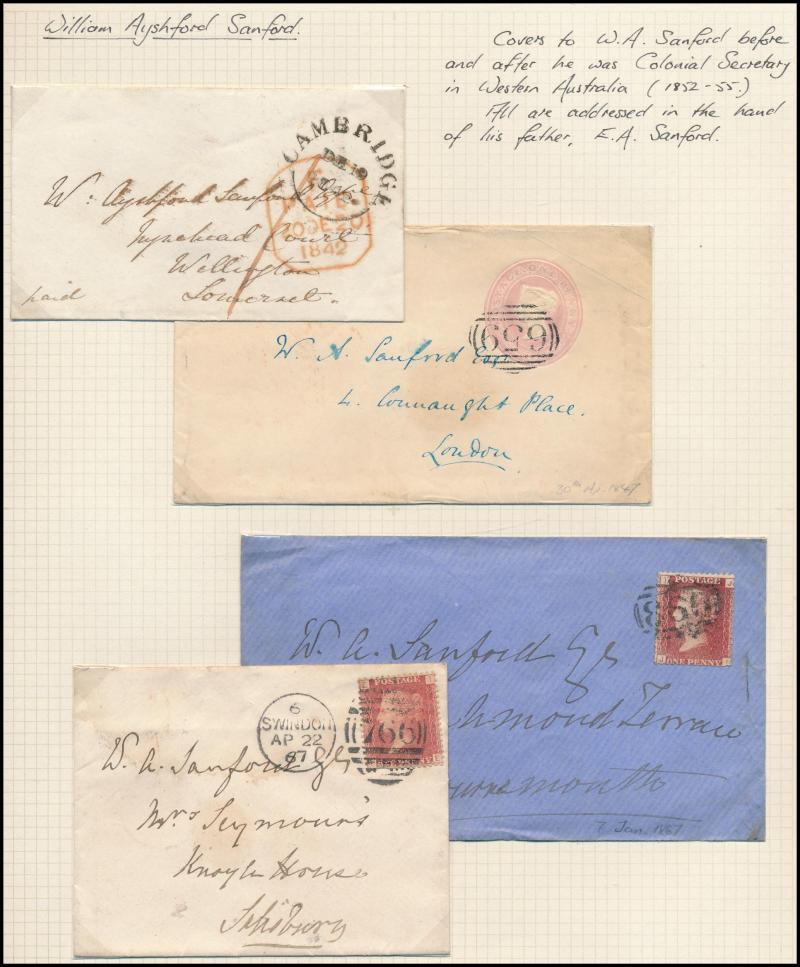 William Ayshford Sanford.
Covers to W.A. Sanford before
and after he was Colonial Secretary
in Western Australia (1852-55.)
All are addressed in the hand
of his father, E.A. Sanford.
CAMBRIDGE
DE 19
PAID
20 DE 20
1842
W. Ayshford Sanford
Nynehead Court
Wellington
Somerset.
paid
659
W. A. Sanford Esqr
4. Connaught Place.
London
30th
POSTAGE
J
ONE PENNY
J
W. A. Sanford Esq
chmond Terrace
ournemouth
7 Jan. 1867
POSTAGE
6
SWINDON
AP 22
67
766
W. A. Sanford Esq
Mrs Seymour's
Knoyle House
Salisbury